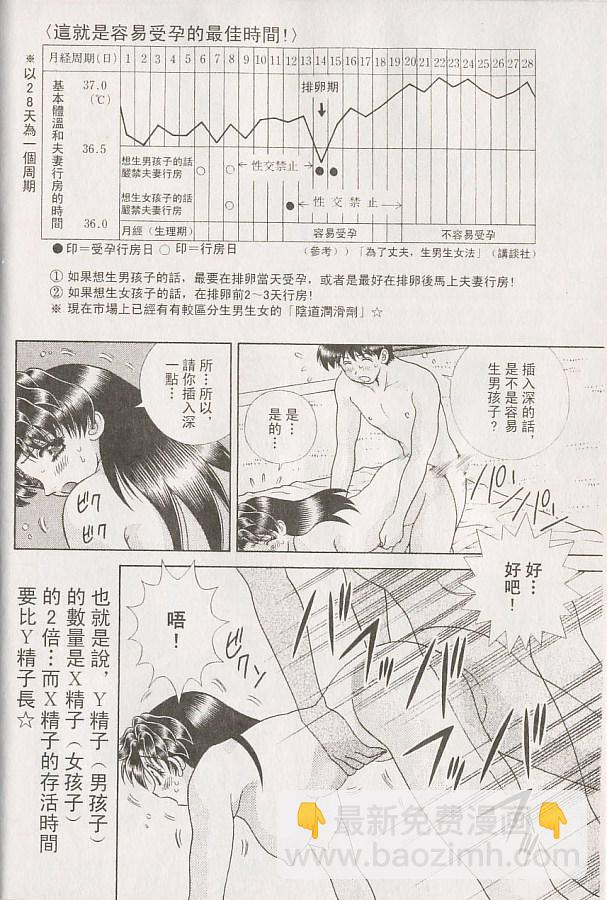 〈這就是容易受孕的最佳時間！〉
※以28天為一個周期
月経周期(日) 1 2 3 4 5 6 7 8 9 10 11 12 13 14 15 16 17 18 19 20 21 22 23 24 25 26 27 28
基本體溫和夫妻行房的時間
37.0
(℃)
36.5
36.0
排卵期
想生男孩子的話
嚴禁夫妻行房
性交禁止
想生女孩子的話
嚴禁夫妻行房
性交禁止
月經（生理期）
容易受孕
不容易受孕
●印＝受孕行房日 ○印＝行房日
(參考)）「為了丈夫，生男生女法」（講談社）
① 如果想生男孩子的話，最要在排卵當天受孕，或者是最好在排卵後馬上夫妻行房！
② 如果想生女孩子的話，在排卵前2～3天行房！
※ 現在市場上已經有有較區分生男生女的「陰道潤滑劑」☆
插入深的話，
是不是容易
生男孩子？
是…
是的…
パンパン
所…所以，
請你插入深
一點…
ビクビク
好…
好吧！
唔！
也就是說，Y精子（男孩子）
的數量是X精子（女孩子）
的2倍…而X精子的存活時間
要比Y精子長☆
最新免费漫画
www.baozimh.com